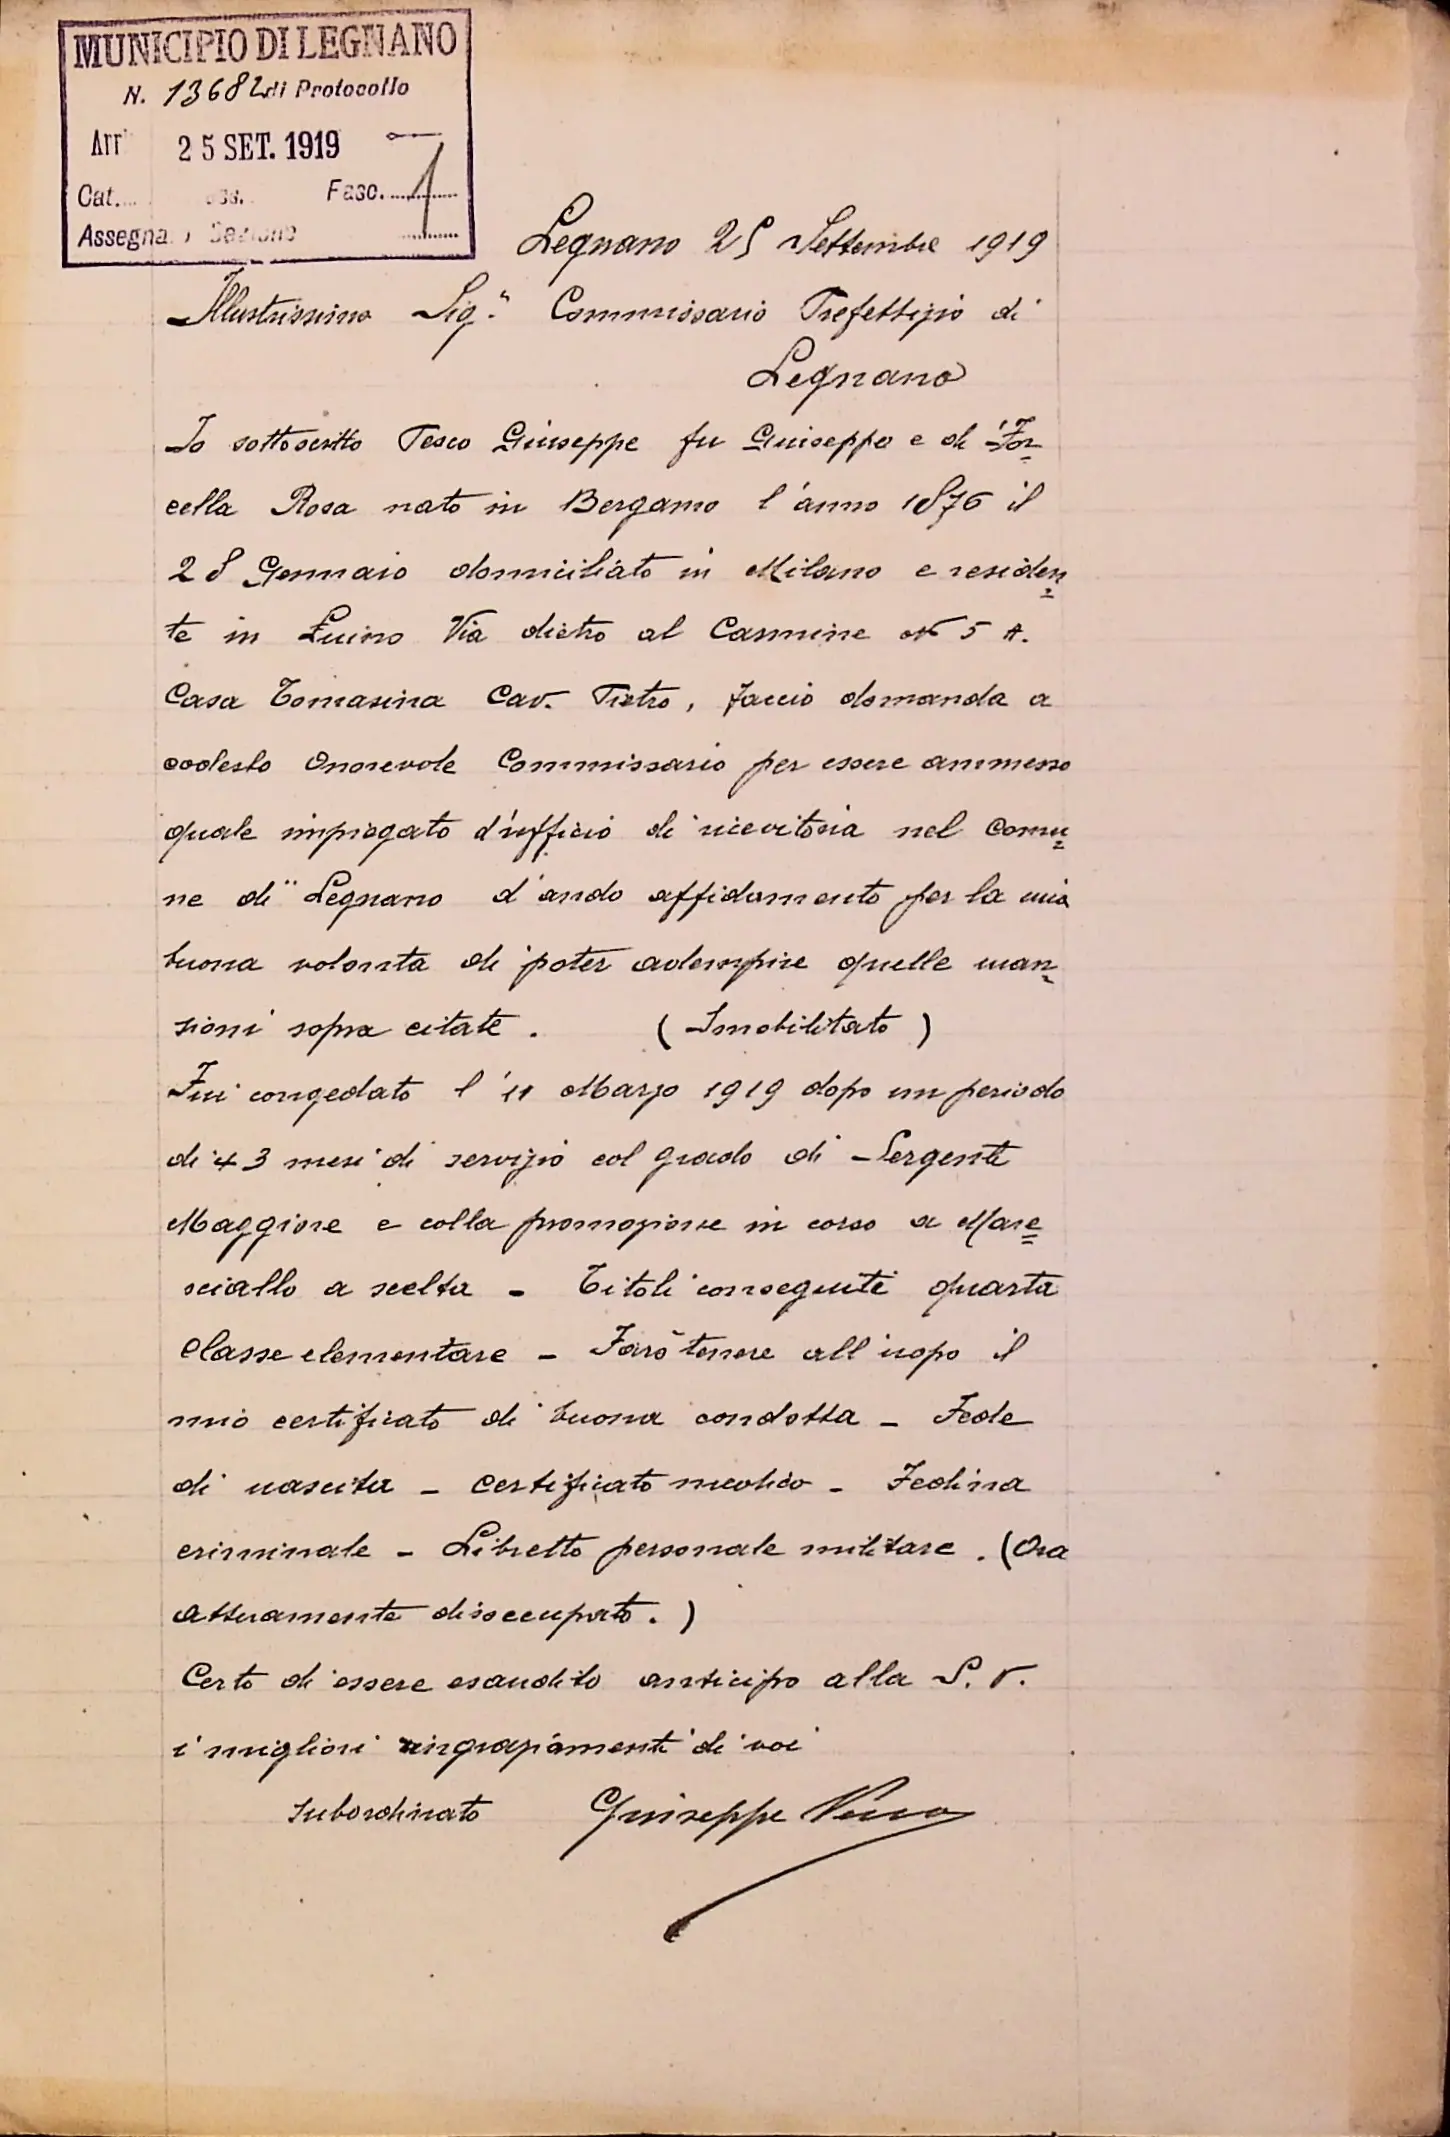 MUNICIPIO DI LEGNANO
N. 13682 di Protocollo
Arr 25 SET. 1919
Cat. Fasc. 1
Assegna Sezione
Legnano 25 Settembre 1919
Illustrissimo Sig.r Commissario Prefettizio di
Legnano
Io sottoscritto Pesco Giuseppe fu Giuseppe e di For=
cella Rosa nato in Bergamo l'anno 1876 il
28 Gennaio domiciliato in Milano e residen=
te in Luino Via dietro al Carmine N 5 A.
Casa Tomasina Cav. Pietro, faccio domanda a
codesto Onorevole Commissario per essere ammesso
quale impiegato d'ufficio di ricevitoria nel Comu=
ne di Legnano d'ando affidamento per la mia
buona volonta di poter adempire quelle man=
sioni sopra citate. (Smobilitato)
Fui congedato l'11 Marzo 1919 dopo un periodo
di 43 mesi di servizio col grado di Sergente
Maggiore e colla promozione in corso a Mare=
sciallo a scelta - Titoli conseguiti quarta
Classe elementare - Farò tenere all'uopo il
mio certificato di buona condotta - Fede
di nascita - Certificato medico - Fedina
criminale - Libretto personale militare. (Ora
attuamente disoccupato.)
Certo di essere esaudito anticipo alla S. V.
i migliori ringraziamenti di voi
subordinato Giuseppe